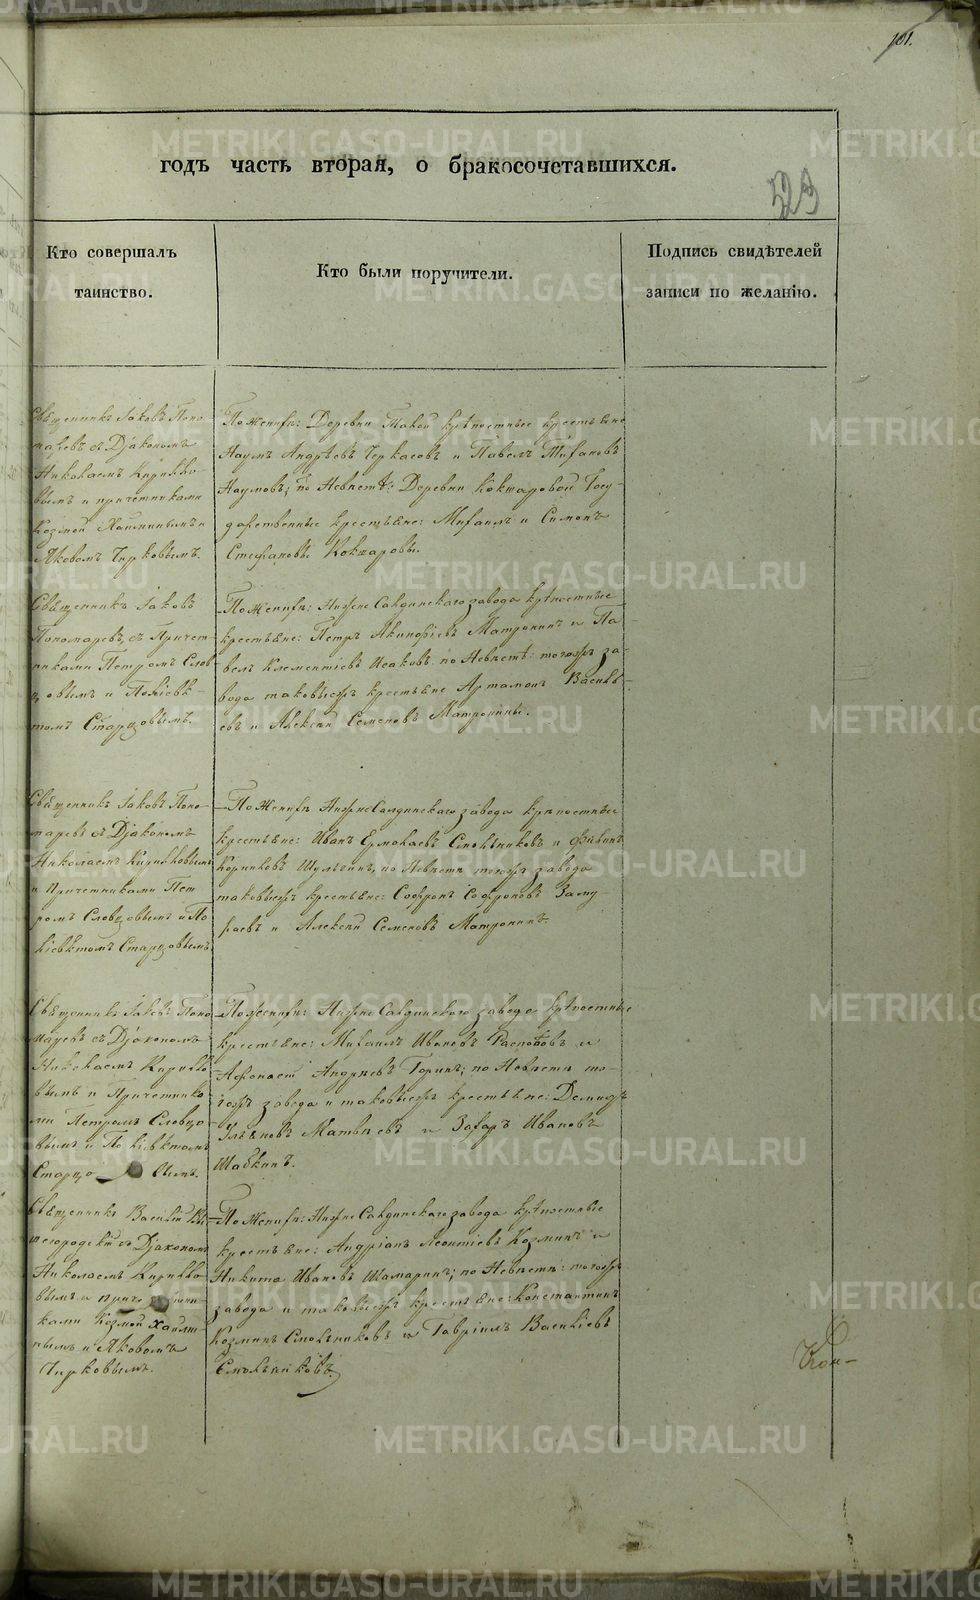 101.
годъ часть вторая, о бракосочетавшихся.
529
Кто совершалъ
таинство.
Кто были поручители.
Подпись свидѣтелей
записи по желанію.
Священникъ Іаковъ Поно
маревъ съ Діакономъ
Николаемъ Кирилло-
вымъ и причетниками
Козмой Хайминымъ и
Яковомъ Чирковымъ.
По женихѣ: Деревни крѣпостные крестьяне
Наумъ Андрѣевъ Черкасовъ и Павелъ
Наумовъ; по Невѣстѣ: Деревни Кокшаровой Госу-
дарственные крестьяне: Михаилъ и Симонъ
Стефановы Кокшаровы.
Священникъ Іаковъ
Пономаревъ, съ Причет-
никами Петромъ Слов
цовымъ и Поліевк-
томъ Старцовымъ.
По женихѣ: Нижне Салдинскаго завода крѣпостные
крестьяне: Петръ Акинфіевъ Матронинъ и Па-
велъ Клементіевъ Исаковъ. по Невѣстѣ: тогожъ за-
вода таковыежъ крестьяне Артамонъ Василь-
евъ и Алексѣй Семеновъ Матронины.
Священникъ Іаковъ Поно-
маревъ съ Діакономъ
Николаемъ Кирилловымъ
и Причетниками Пет
ромъ Словцовымъ и По
ліевктомъ Старцовымъ
По Женихѣ Нижне Салдинскаго завода крѣпостные
крестьяне: Иванъ Ермолаевъ Смольниковъ и
по Невѣстѣ тогожъ завода
таковыежъ крестьяне: Софронъ Софроновъ Заму-
раевъ и Алексѣй Семеновъ Матронинъ
Священникъ Іаковъ Поно
маревъ съ Діакономъ
Николаемъ Кирилло
вымъ и Причетника-
ми Петромъ Словцо-
вымъ и Поліевктомъ
Старцовымъ.
По женихѣ: Нижне Салдинскаго завода крѣпостные
крестьяне: Михаилъ Ивановъ Распоповъ и
Афонасей Андреевъ Горинъ; по Невѣстѣ то-
гожъ завода и таковыежъ крестьяне: Демидъ
Ульяновъ Матвеевъ и Захаръ Ивановъ
Шабкинъ.
Священникъ Василій Вы
шегородскій съ Діакономъ
Николаемъ Кирилло
вымъ и причетни-
ками Козмой Хайми
нымъ и Яковомъ
Чирковымъ.
По Женихѣ: Нижне Салдинскаго завода крѣпостные
крестьяне: Андріанъ Леонтіевъ Козминъ и
Никита Ивановъ Шамаринъ; по Невѣстѣ: тогожъ
завода и таковыежъ крестьяне: Константинъ
Козминъ Смольниковъ и Гавріилъ Васильевъ
Смольниковъ.